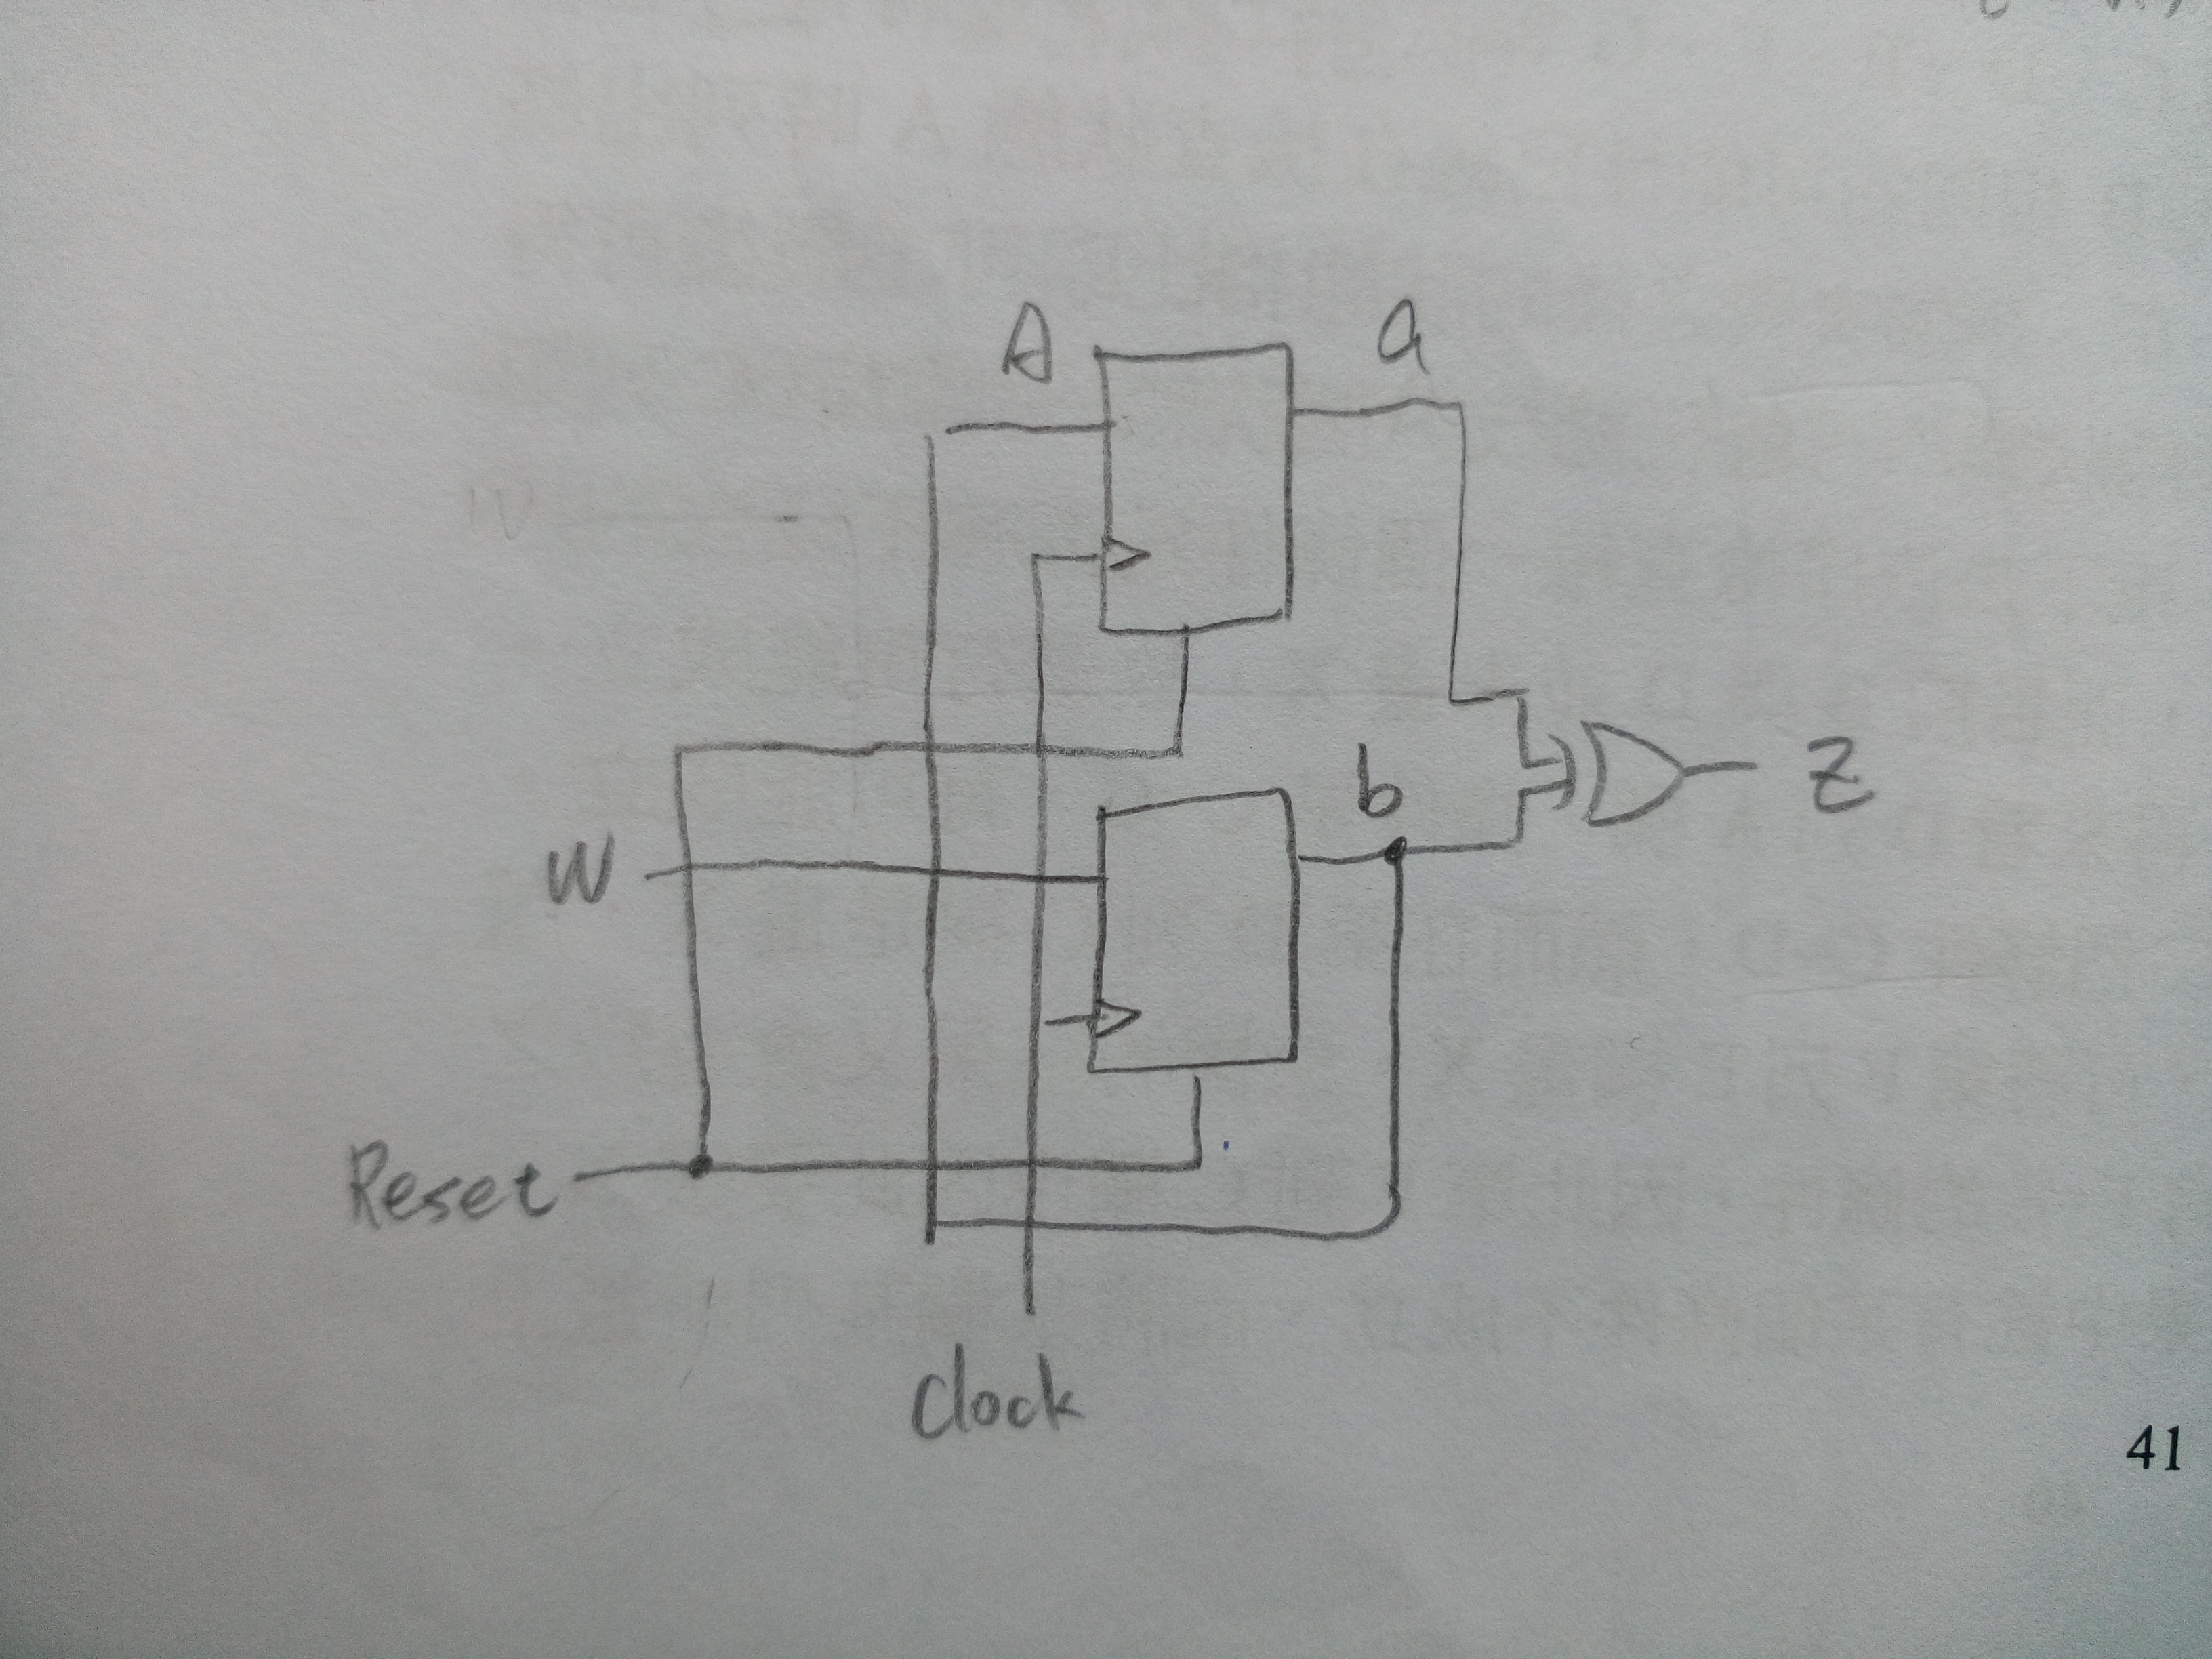 A a
b
Z
W
Reset
Clock
41